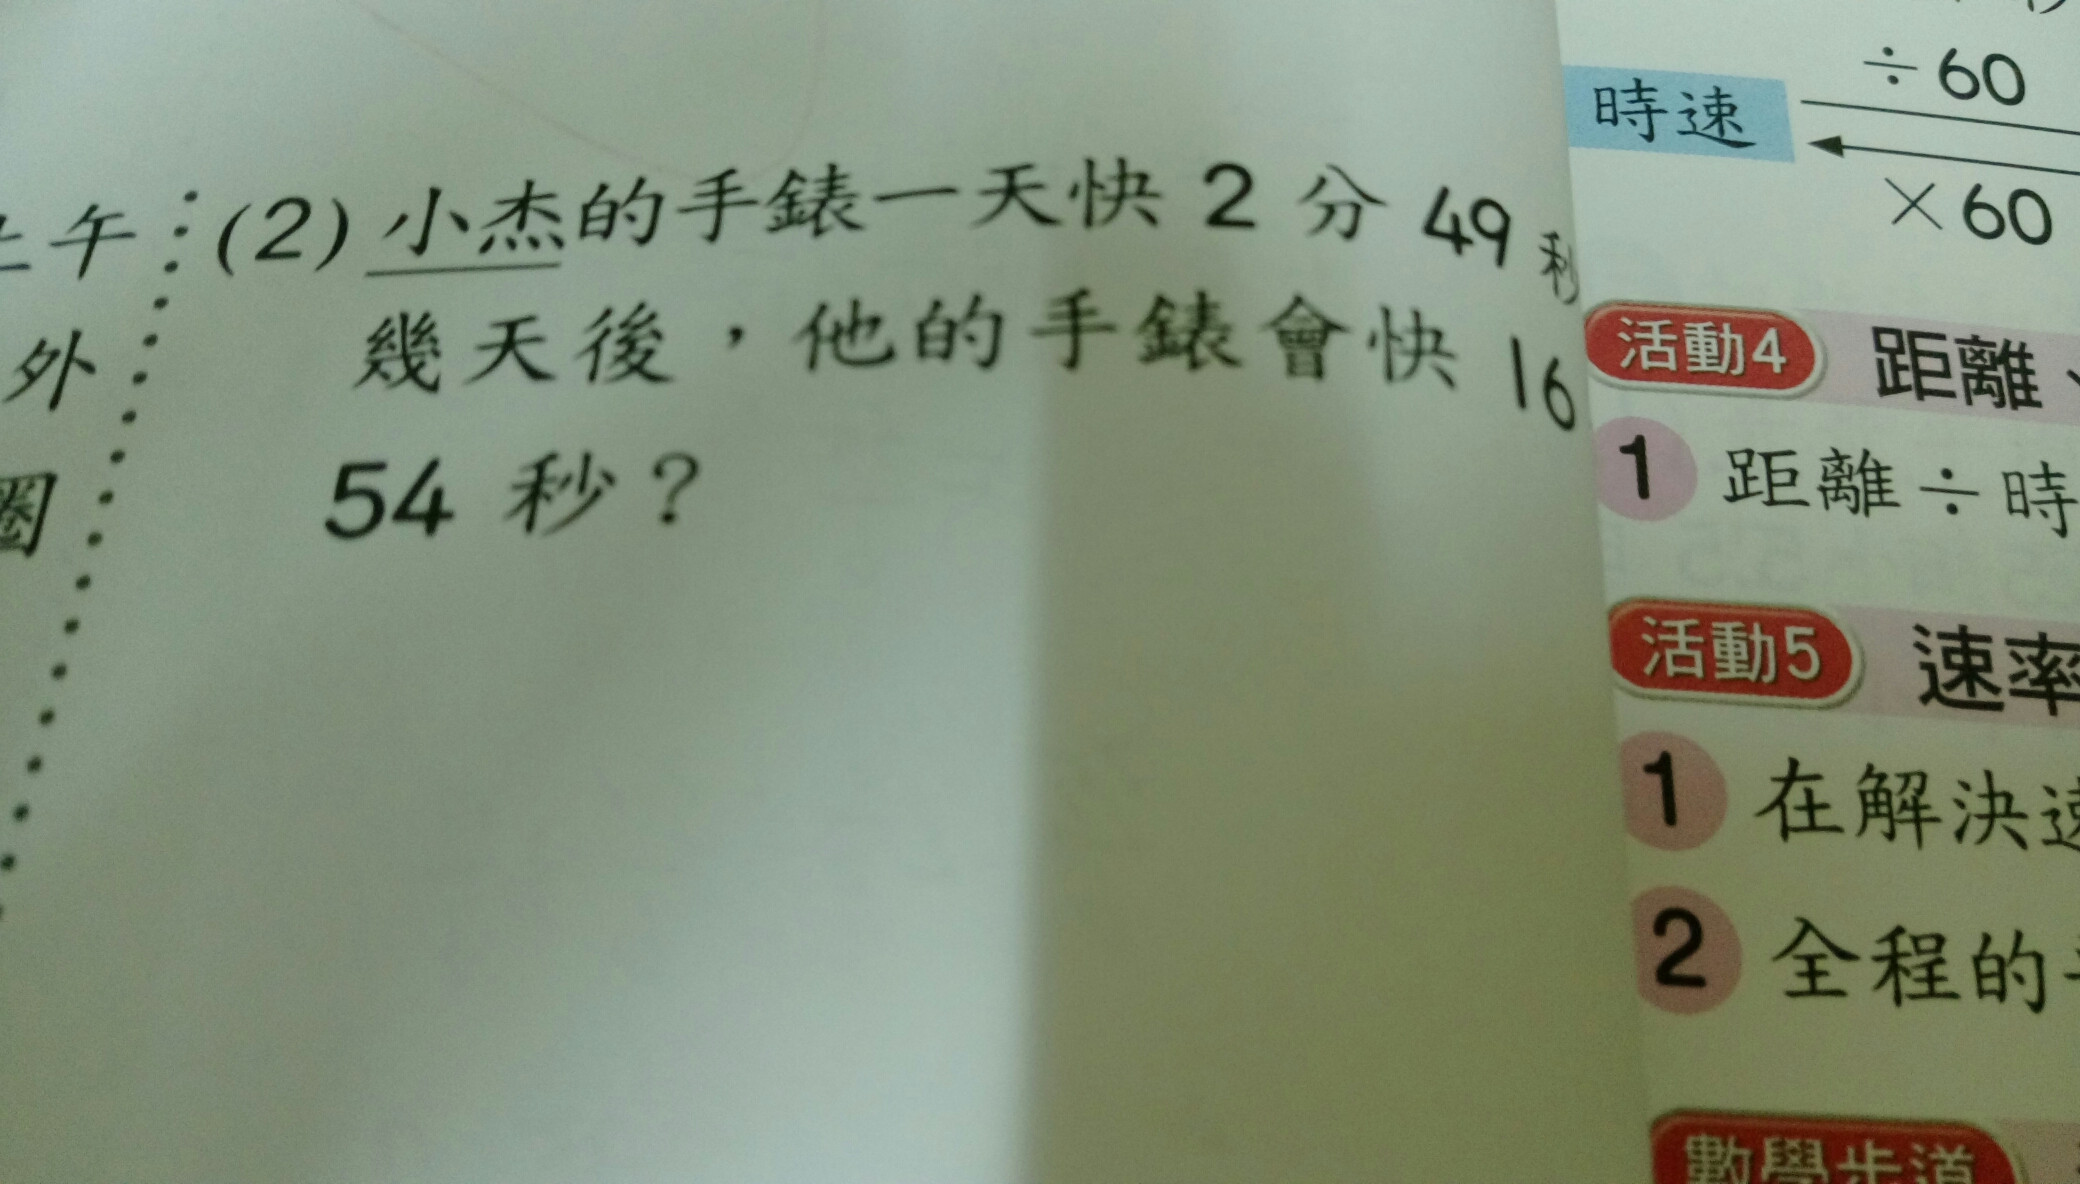 午
外
圈
(2) 小杰的手錶一天快 2 分 49 秒
幾天後，他的手錶會快 16
54 秒？
時速
÷ 60
× 60
活動4 距離、
1 距離÷時
活動5 速率
1 在解決速
2 全程的
數學步道